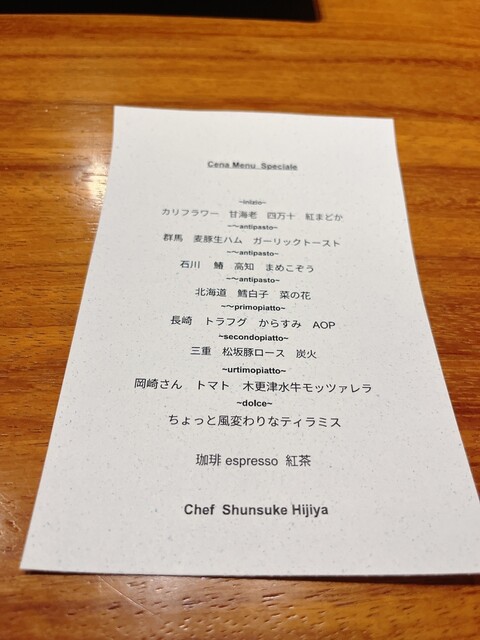 Cena Menu Speciale
~iniato~
カリフラワー 甘海老 四万十 紅まどか
~~antipasto~
群馬 麦豚生ハム ガーリックトースト
~~antipasto~
石川 鰆 高知 まめこぞう
~~antipasto~
北海道 鱈白子 菜の花
~~primopiatto~
長崎 トラフグ からすみ AOP
~secondopiatto~
三重 松坂豚ロース 炭火
~urtimopiatto~
岡崎さん トマト 木更津水牛モッツァレラ
~dolce~
ちょっと風変わりなティラミス
珈琲 espresso 紅茶
Chef Shunsuke Hijiya